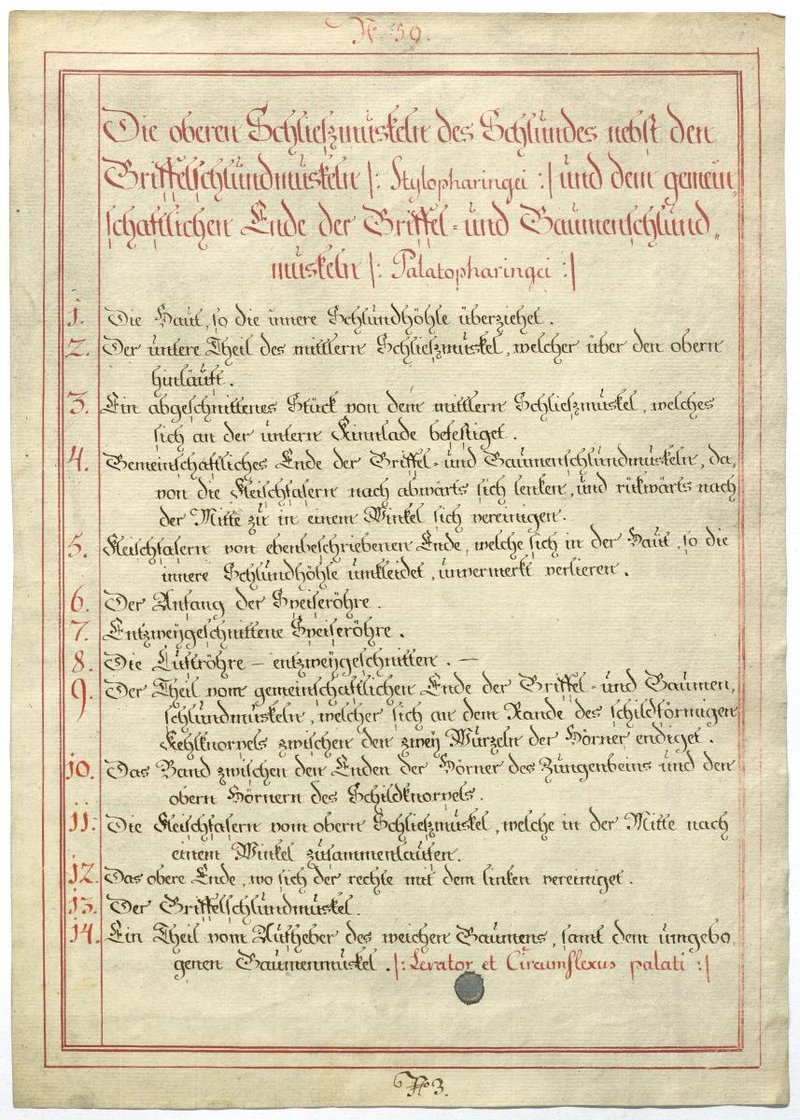 N.º 59.
Die oberen Schließmuskeln des Schlundes nebst den
Griffelschlundmuskeln |: Stylopharingei :| und dem gemein„
schaftlichen Ende der Griffel- und Gaumenschlund„
muskeln |: Palatopharingei :|
1. Die Haut, so die innere Schlundhöhle überziehet.
2. Der untere Theil des mittlern Schließmuskel, welcher über den obern
hinläuft.
3. Ein abgeschnittenes Stück von dem mittlern Schließmuskel, welches
sich an der untern Kinnlade befestiget.
4. Gemeinschaftliches Ende der Griffel- und Gaumenschlundmuskeln, da„
von die Fleischfasern nach abwärts sich lenken, und rükwärts nach
der Mitte zu in einem Winkel sich vereinigen.
5. Fleischfasern von ebenbeschriebenen Ende, welche sich in der Haut, so die
innere Schlundhöhle umkleidet, unvermerkt verlieren.
6. Der Anfang der Speiseröhre.
7. Entzweygeschnittene Speiseröhre.
8. Die Luftröhre – entzweygeschnitten. –
9. Der Theil vom gemeinschaftlichen Ende der Griffel- und Gaumen„
schlundmuskeln, welcher sich an dem Rande des schildförmigen
Kehlknorpels zwischen den zwey Würzeln der Hörner endiget.
10. Das Band zwischen den Enden der Hörner des Zungenbeins und den
obern Hörnern des Schildknorpels.
11. Die Fleischfasern vom obern Schließmuskel, welche in der Mitte nach
einem Winkel zusammenlaufen.
12. Das obere Ende, wo sich der rechte mit dem linken vereiniget.
13. Der Griffelschlundmuskel.
14. Ein Theil vom Aufheber des weichen Gaumens, samt dem umgebo„
genen Gaumenmuskel. |: Levator et Circumflexus palati :|